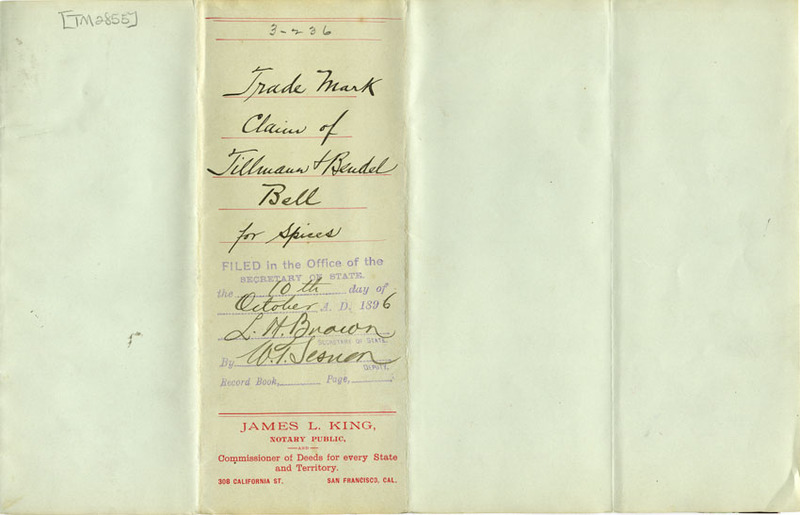 [TM2855]
3-236
Trade Mark
Claim of
Tillmann & Bendel
Bell
for Spices
FILED in the Office of the
SECRETARY OF STATE.
the 10th day of
October A. D. 1896
L. H. Brown
SECRETARY OF STATE.
By W. T. Sesnon
DEPUTY.
Record Book, Page,
JAMES L. KING,
NOTARY PUBLIC,
AND
Commissioner of Deeds for every State
and Territory.
308 CALIFORNIA ST. SAN FRANCISCO, CAL.